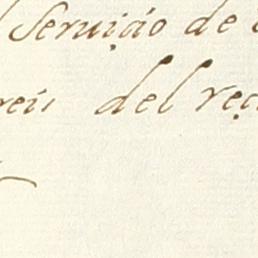 Seruição de
reis del reç